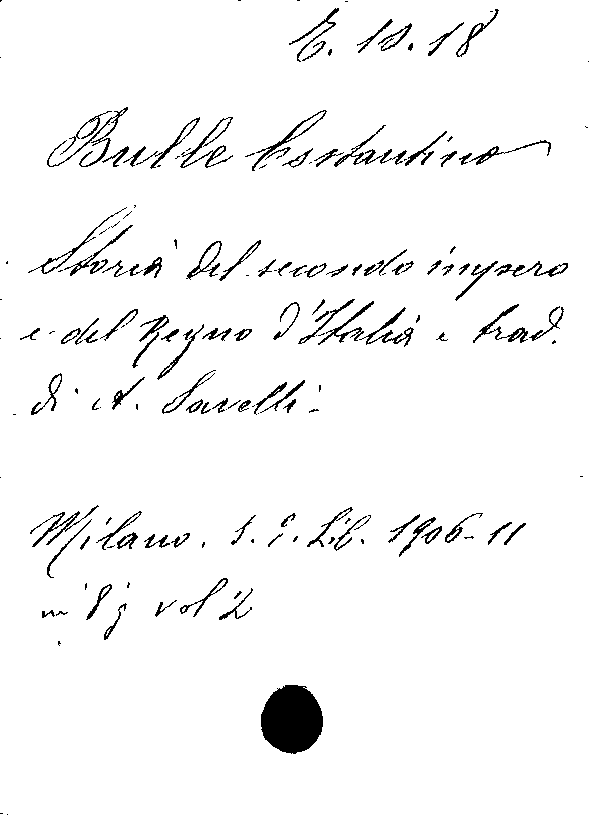 E. 10. 18
Bulle Costantino
Storia del secondo impero
e del Regno d'Italia e trad.
di A. Savelli -
Milano. S. E. Lib. 1906-11
in 8 g vol 2